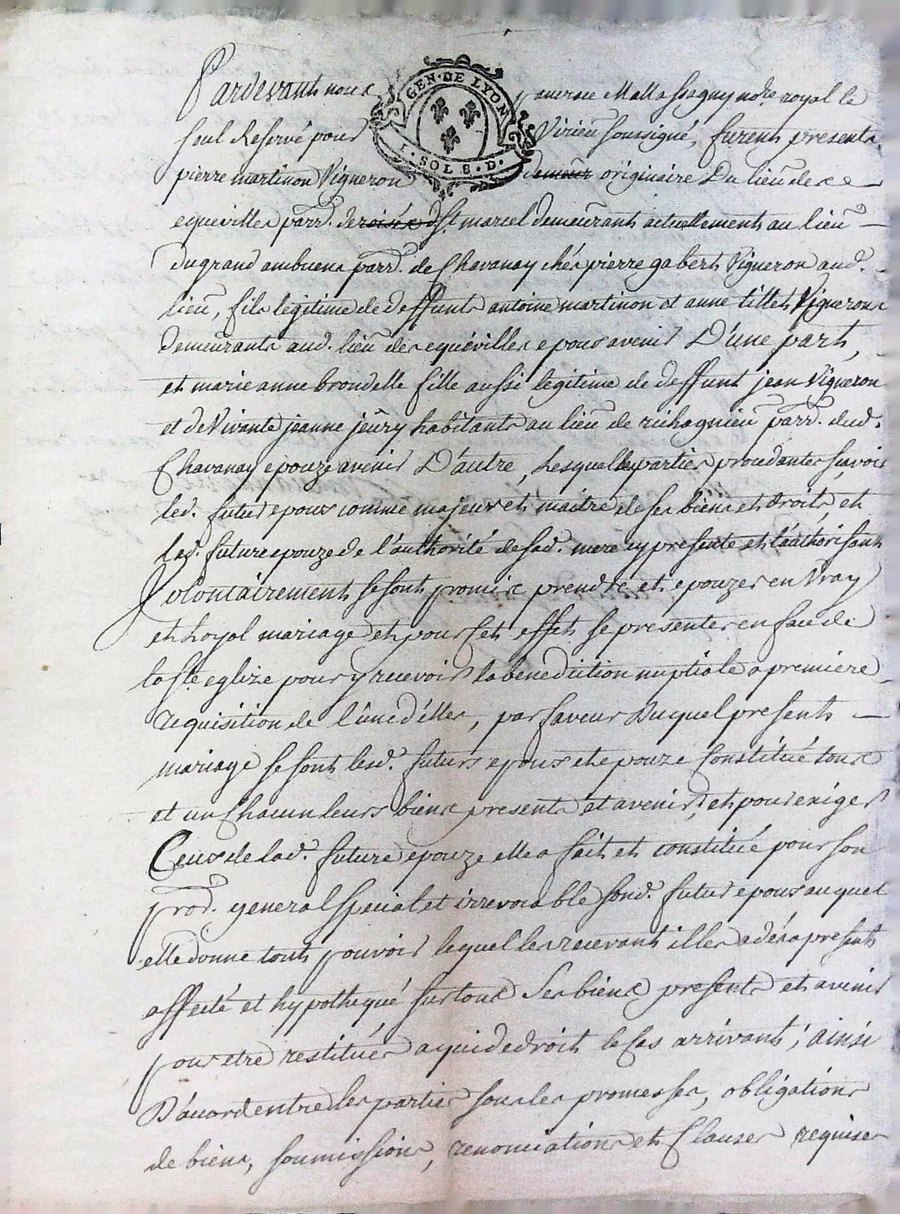 GEN·DE LYON
1·SOL 8·D·
Pardevant nous Mallassagny no.re royal le
seul Reservé pour Virieu soussigné, furent presents
pierre martinon Vigneron demeur originaire Du lieu des
equeville parr. de d St. marcel demeurants actuellement au lieu —
du grand ambuens parr. de Chavanay chés pierre gabert Vigneron aud.
lieu, fils legitime de deffunts antoine martinon et anne tillet Vignerons
demeurants aud. lieu des equévilles epous avenir D'une part,
et marie anne brondelle fille aussi legitime de deffunt jean Vigneron
et de Vivante jeanne jeury habitants au lieu de parr. dud.
Chavanay epouze avenir D'autre, Lesquelles parties procedantes scavoir
led. futur epous comme majeur et maitre de ses biens et droits et
lad. future epouze de l'authorité de sad. mere cy presente et l'authorisant
Volontairement se sont promis prendre et epouzer en Vray
et Loyal mariage et pour set effet se presenter en face de
la ste eglize pour y recevoir la benediction nuptiale a premiere
requisition de l'une d'elles, par faveur Duquel present —
mariage se sont lesd. futurs epous et epouze constitué tous
et un Chacun leurs biens presents et avenir, et pour exiger
Ceux de lad. future epouze elle a fait et constitué pour son
prod. general special et irrevocable sond. futur epous auquel
elle donne tout pouvoir lequel les recevant il les a dés a present
affecté et hypothequé sur tous Ses biens presents et avenir
pour etre restitués a qui de droit le cas arrivant; ainsi
D'acord entre les parties sous les promesses, obligations
de biens, soumissions, renonciations et Clauses requises